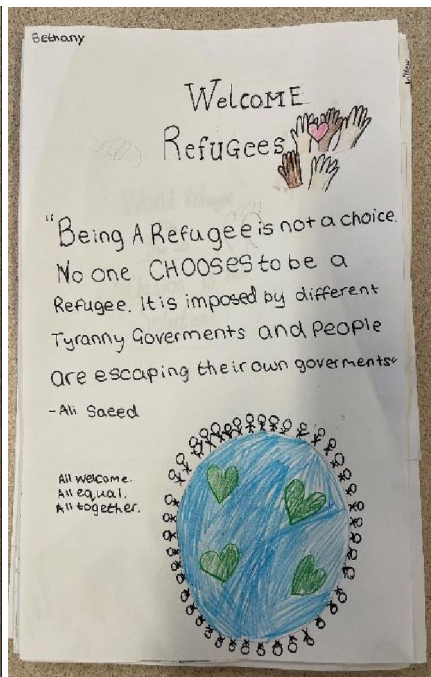 Bethany
Willow
WelcoME
RefuGees
"Being A Refugee is not a choice.
No one CHOOSES to be a
Refugee. It is imposed by different
Tyranny Goverments and people
are escaping their own goverments"
-Ali Saeed
All welcome.
All equal.
All together.